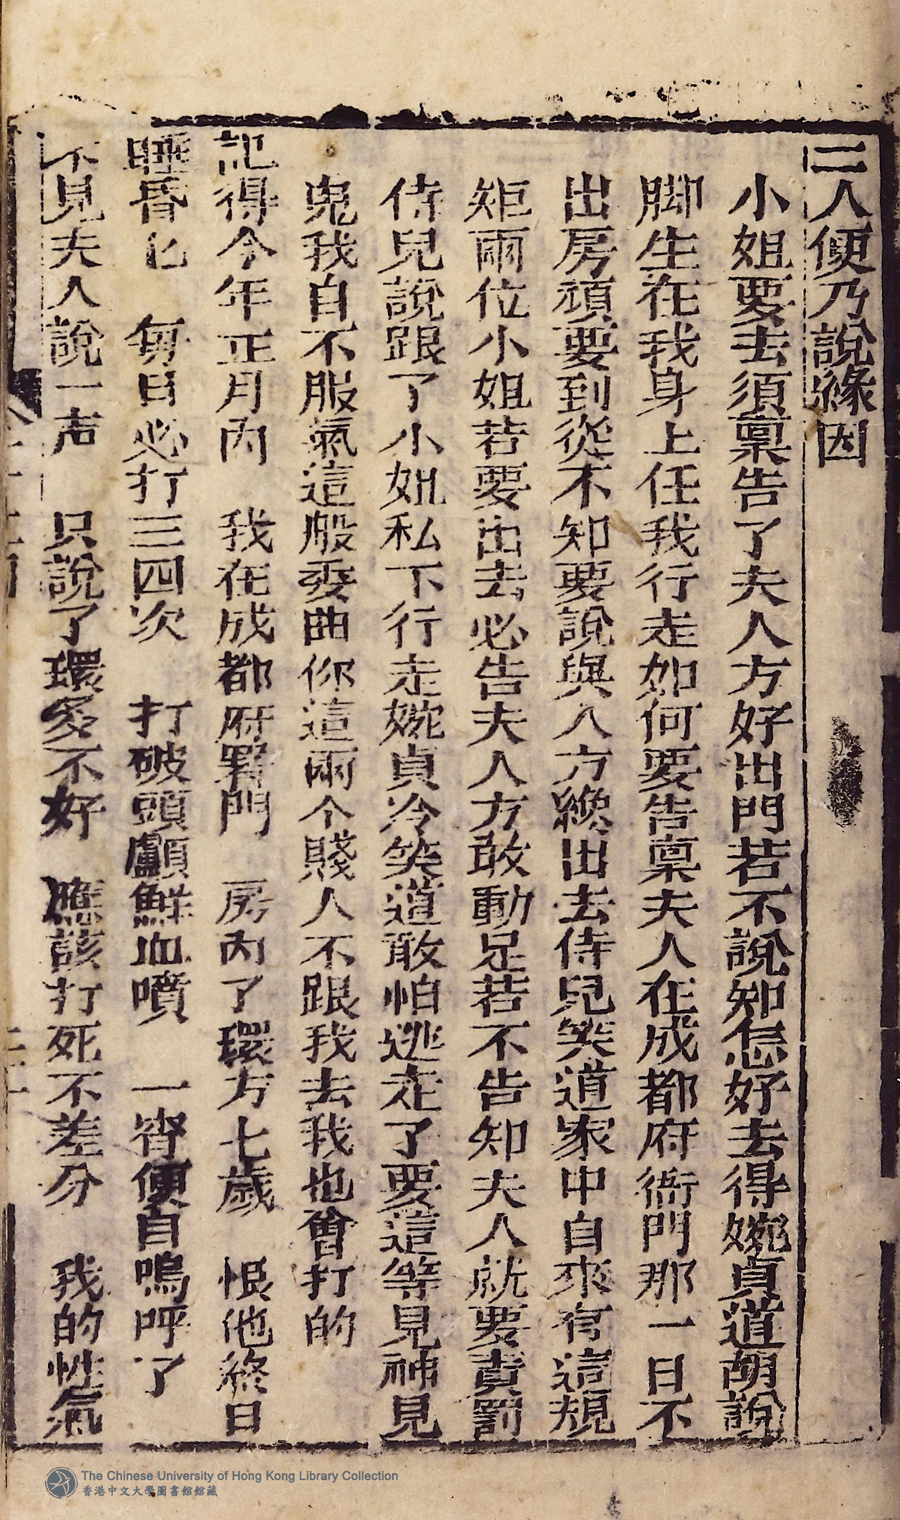 二人便乃說緣因
小姐要去須禀告了夫人方好出門若不說知怎好去得婉貞道胡說
脚生在我身上任我行走如何要告禀夫人在成都府衙門那一日不
出房頑要到從不知要說與人方纔出去侍兒笑道家中自來有這規
矩兩位小姐若要出去必告夫人方敢動足若不告知夫人就要責罰
侍兒說跟了小姐私下行走婉貞冷笑道敢怕逃走了要這等見神見
鬼我自不服氣這般委曲你這兩个賤人不跟我去我也會打的
記得今年正月內 我在成都府署門 房內了環方七歲 恨他終日
睡昏化 每日必打三四次 打破頭顱鮮血噴 一宵便自嗚呼了
不見夫人說一声 只說了環多不好 應該打死不差分 我的性氣
The Chinese University of Hong Kong Library Collection
香港中文大學圖書館館藏